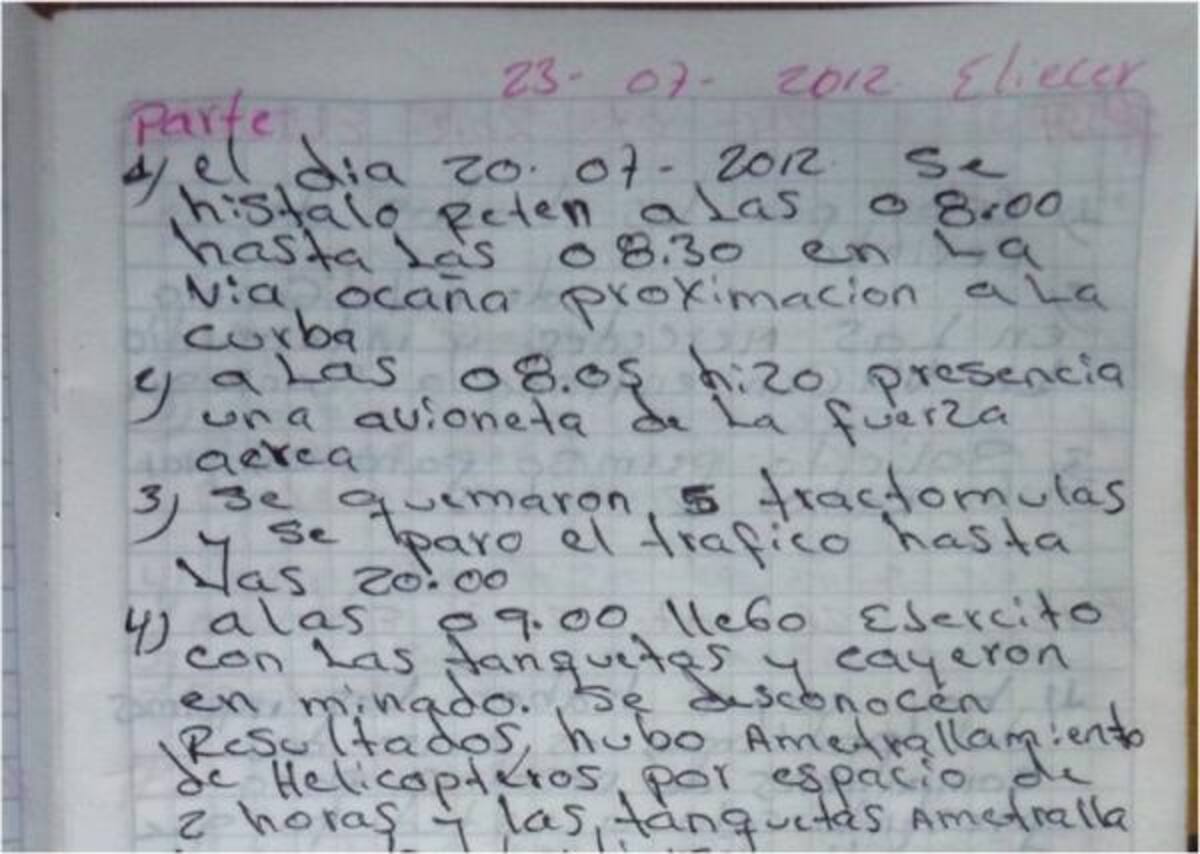 23-07-2012 Eliecer
Parte
1) el dia 20.07-2012 se
histalo Reten a las 08.00
hasta las 08.30 en La
Via ocaña proximacion a La
curba
2) a Las 08.05 hizo presencia
una avioneta de La fuerza
aerea
3) se quemaron 5 tractomulas
y se paro el trafico hasta
las 20.00
4) a las 09.00 llebo Ejercito
con Las tanquetas y cayeron
en minado. Se desconocen
Resultados, hubo Ametrallamiento
de Helicopteros por espacio de
2 horas y las tanquetas Ametralla